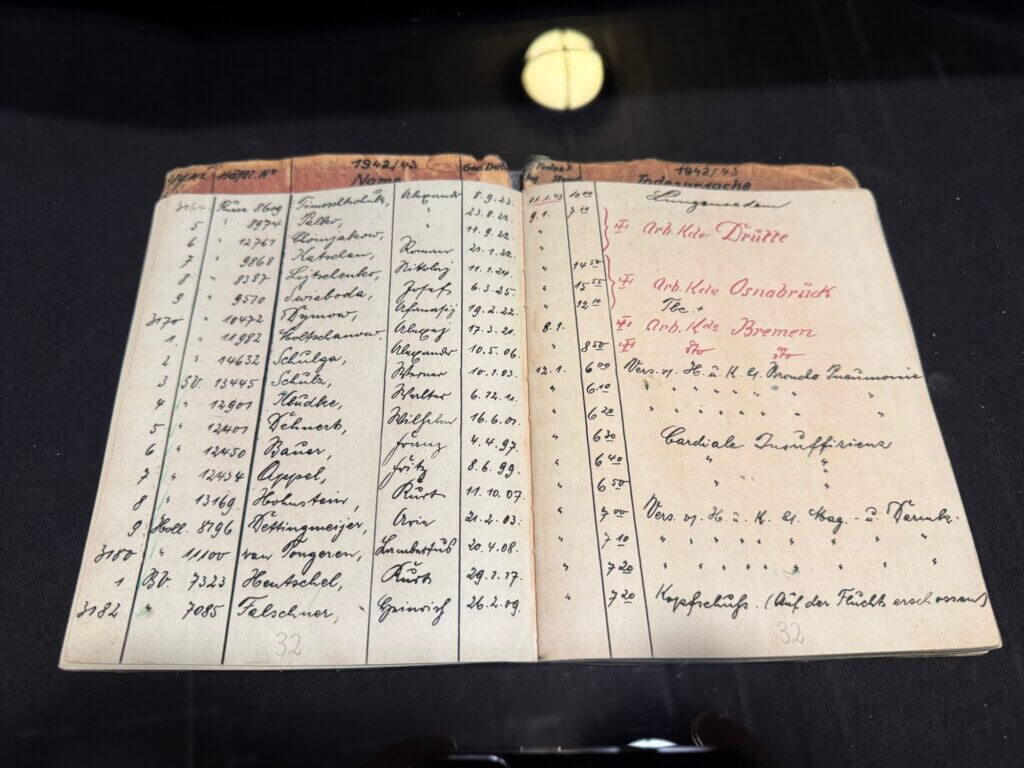 Lfd Nr. Häftl. Nº 1942/43 Name Geb. Dat. Todes Tag Std. 1942/43 Todesursache
3164 Russe 8609 Timoschtschuk, Alexander 8.9.23. 11.1.43 10 10 Lungenoedem
5 " 8974 Palko, " 23.8.22. 9.1. 7 10
6 " 12761 11.9.22. " Arb. Kdo. Drütte
7 " 9868 Katschan, Roman 21.1.22. "
8 " 8387 Nikolaj 11.1.24. " 14 50
9 " 9510 Swieboda, Josef 6.3.25. " 15 55 Arb. Kdo Osnabrück
3170 " 10472 Dymow, Afanasij 19.2.22. " 12 10 Tbc. +
1 " 11982 Alexej 17.3.21. 8.1. Arb. Kdo Bremen
2 " 14632 Schulga, Alexander 10.5.06. " 8 50 dto dto
3 SV. 13445 Schulz, Werner 10.1.03. 12.1. 6 00 Vers. v. H. u. K. bl. Broncho Pneumonie
4 " 12901 Walter 6.12.10. " 6 10 " " " " " "
5 " 12401 Dehnert, Wilhelm 16.6.01. " 6 20 " " " " " "
6 " 12450 Bauer, Franz 4.4.97. " 6 30 Cardiale Insuffizienz
7 " 12434 Appel, Fritz 8.6.99. " 6 40 " "
8 " 13169 Hohnstein, Kurt 11.10.07. " 6 50 " "
9 Holl. 8796 Dettingmeijer, Arie 21.2.03. " 7 00 Vers. v. H. u. K. bl. Mag.- u. Darmk.
3180 " 11100 van Tongeren, Lambertus 20.4.08. " 7 10 " " " " " " " "
1 BV. 7323 Hentschel, Kurt 29.1.17. " 7 20 " " " " " " " "
3182 " 7085 Falschner, Heinrich 26.2.09. " 7 20 Kopfschuß. (Auf der Flucht erschossen)
32 32